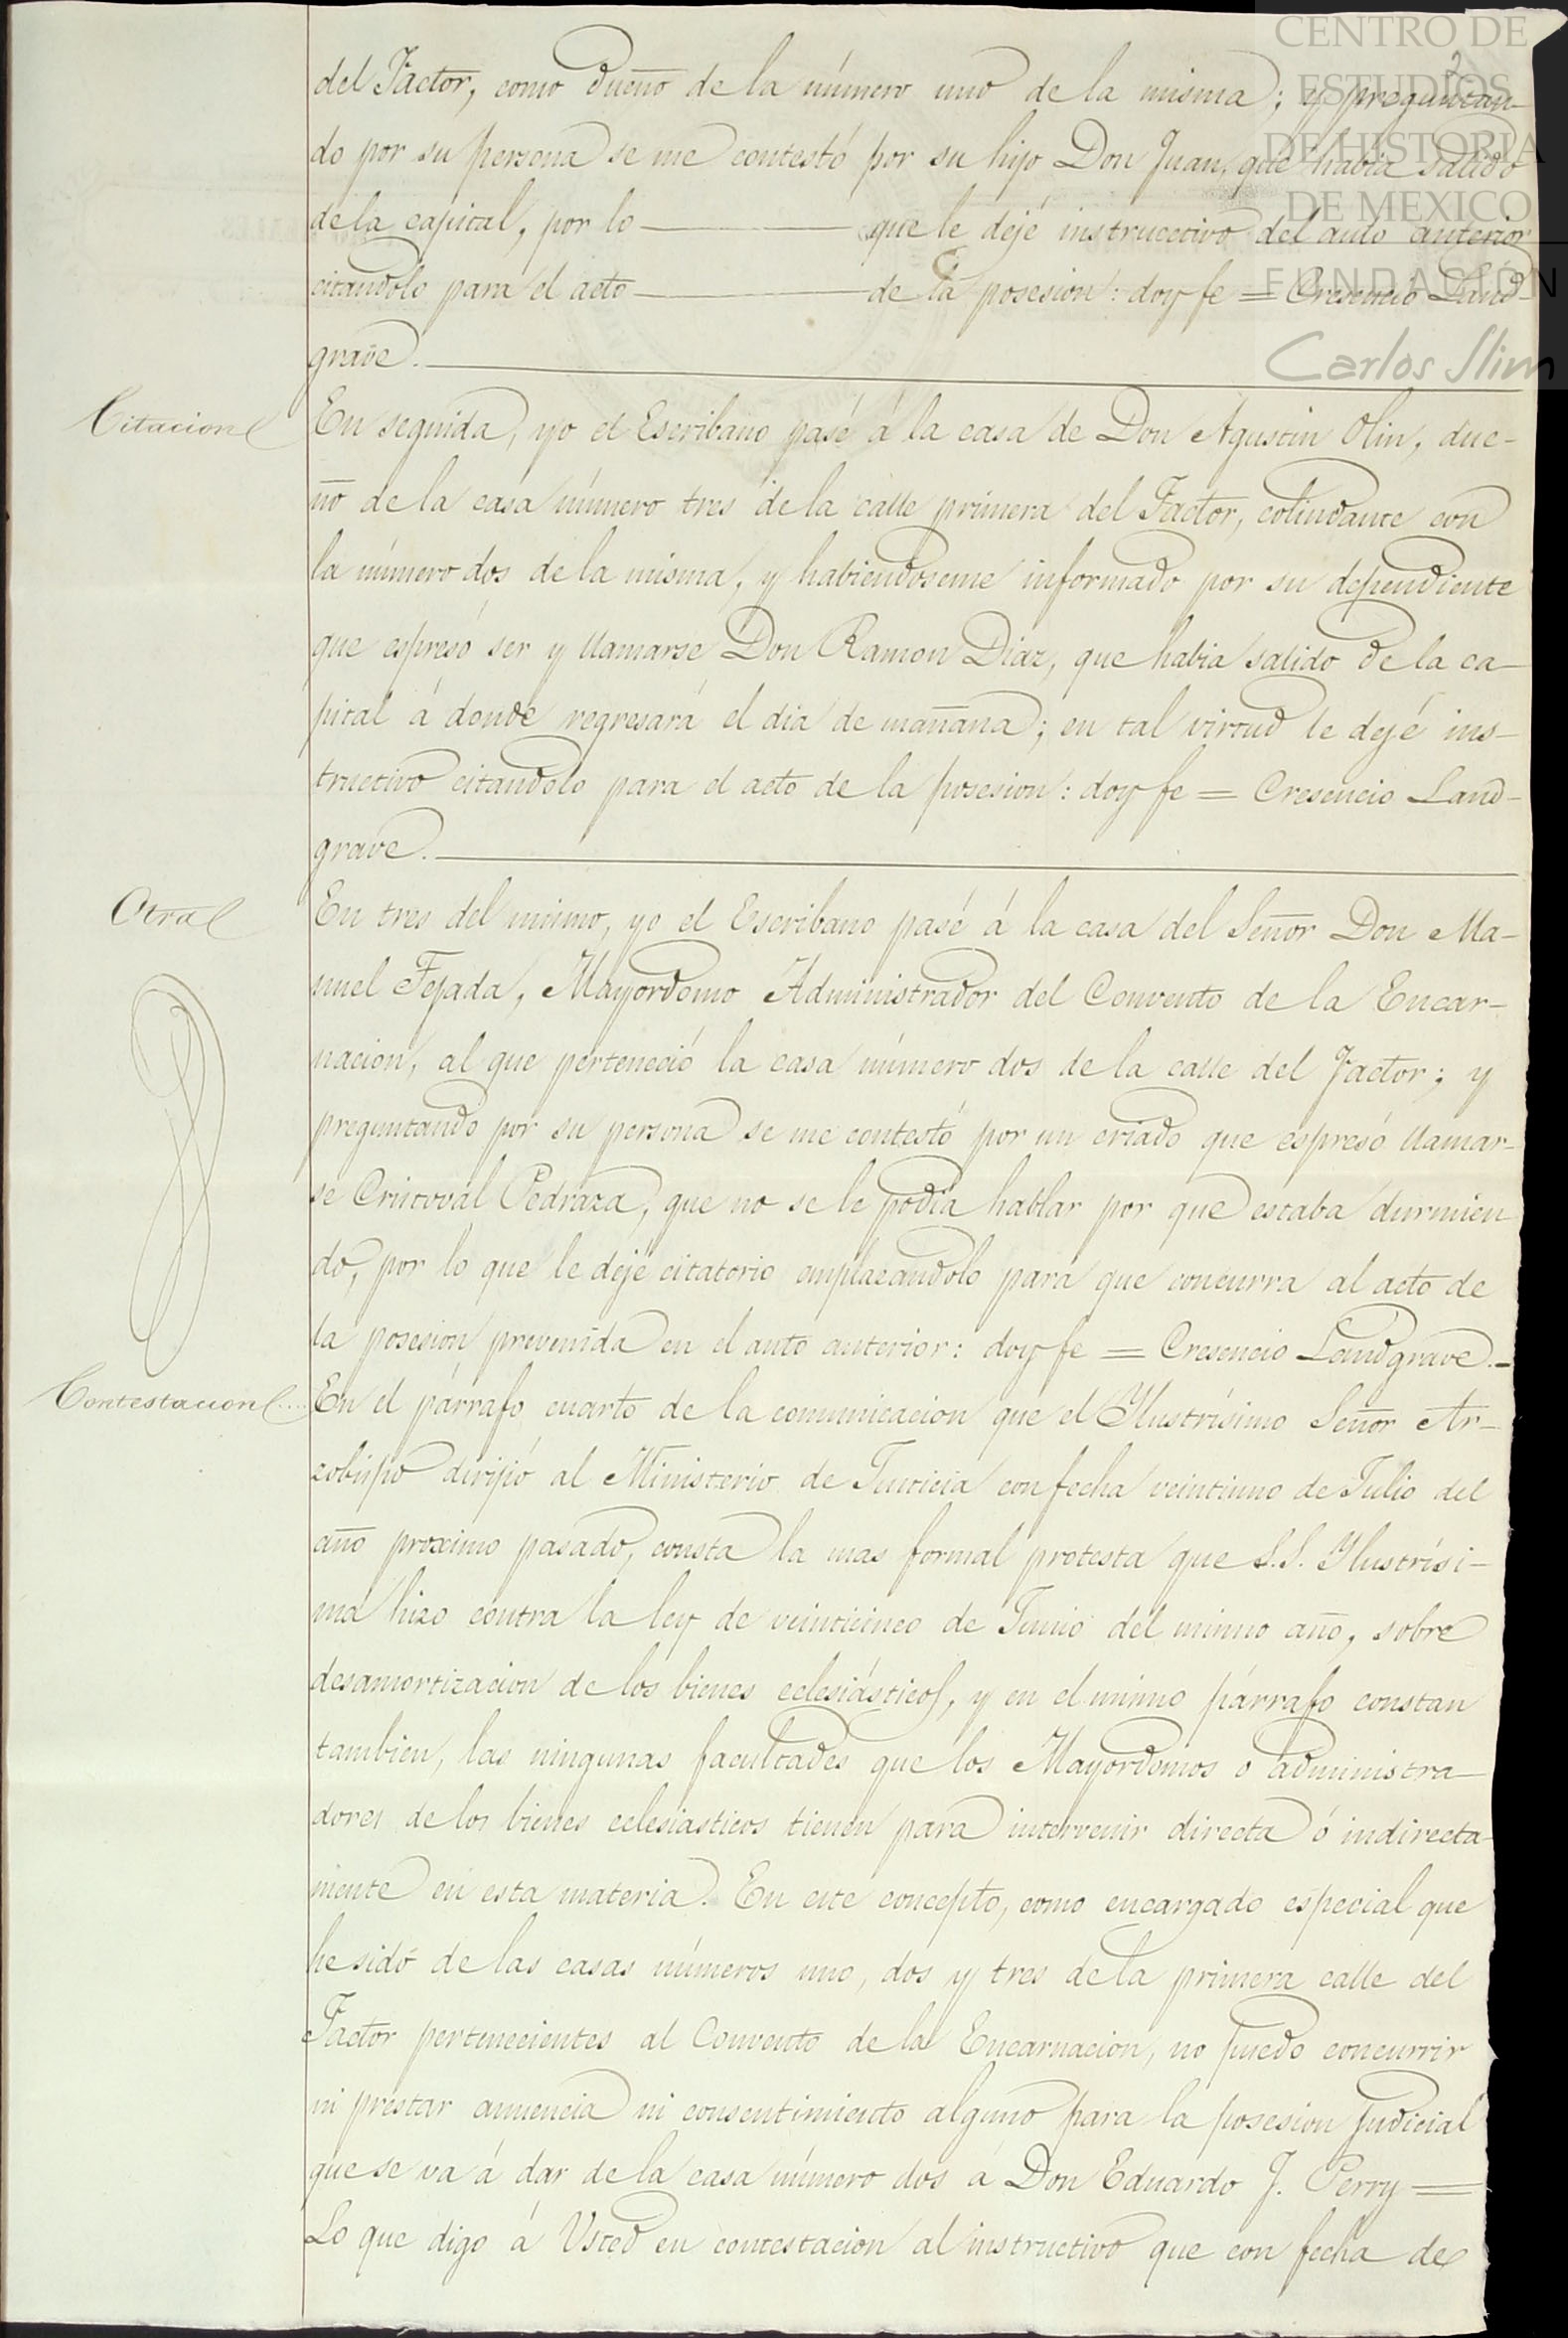 CENTRO DE
ESTUDIOS
DE HISTORIA
DE MEXICO
FUNDACIÓN
Carlos Slim
2
del Factor, como dueño de la número uno de la misma; y preguntan-
do por su persona se me contestó por su hijo Don Juan, que habia salido
de la capital, por lo ——— que le dejé instructivo del auto anterior
citandolo para el acto ——— de la posesion: doy fe = Cresencio Land-
grave.
Citacion
En seguida, yo el Escribano pasé á la casa de Don Agustin Olin, due-
ño de la casa número tres de la calle primera del Factor, colindante con
la número dos de la misma, y habiendoseme informado por su dependiente
que espresó ser y llamarse Don Ramon Diaz, que habia salido de la ca-
pital á donde regresará el dia de mañana; en tal virtud le dejé ins-
tructivo citandolo para el acto de la posesion: doy fe = Cresencio Land-
grave.
Otra
En tres del mismo, yo el Escribano pasé á la casa del Señor Don Ma-
nuel Tejada, Mayordomo Administrador del Convento de la Encar-
nacion, al que perteneció la casa número dos de la calle del Factor; y
preguntando por su persona se me contestó por un criado que espresó llamar-
se Cristoval Pedraza, que no se le podia hablar por que estaba durmien
do, por lo que le dejé citatorio emplazandolo para que concurra al acto de
la posesion prevenida en el auto anterior: doy fe = Cresencio Landgrave.-
Contestacion....
En el párrafo cuarto de la comunicacion que el Ylustrísimo Señor Ar-
zobispo dirijió al Ministerio de Justicia con fecha veintiuno de Julio del
año proximo pasado, consta la mas formal protesta que S.S. Ylustrísi-
ma hizo contra la ley de veinticinco de Junio del mismo año, sobre
desamortizacion de los bienes eclesiásticos, y en el mismo párrafo constan
tambien, las ningunas facultades que los Mayordomos o administra-
dores de los bienes eclesiasticos tienen para intervenir directa ó indirecta-
mente en esta materia. En este concepto, como encargado especial que
he sido de las casas números uno, dos y tres de la primera calle del
Factor pertenecientes al Convento de la Encarnacion, no puedo concurrir
ni prestar anuencia ni consentimiento alguno para la posesion judicial
que se va á dar de la casa número dos á Don Eduardo J. Perry =
Lo que digo á Usted en contestacion al instructivo que con fecha de